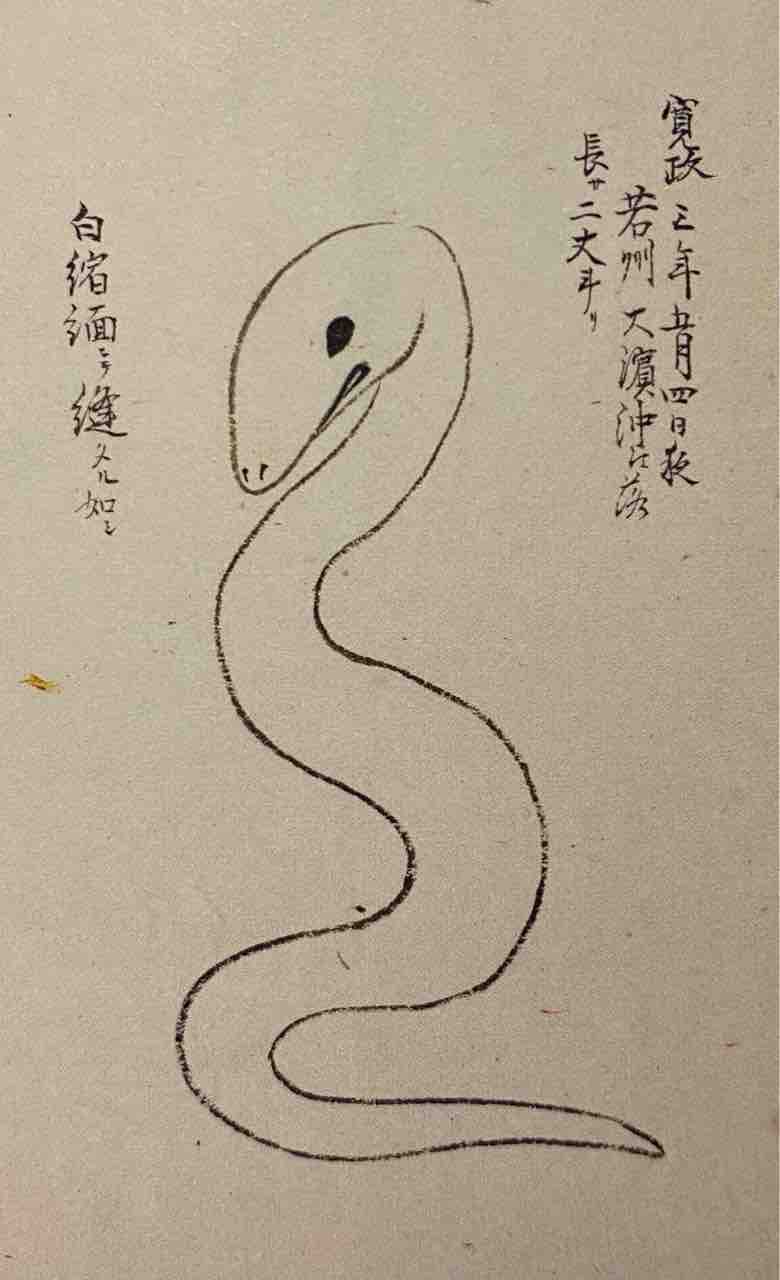 寛政三年五月四日夜
若州大濱沖ニ落
長サ二丈斗リ
白縮緬ニテ縫タル如シ